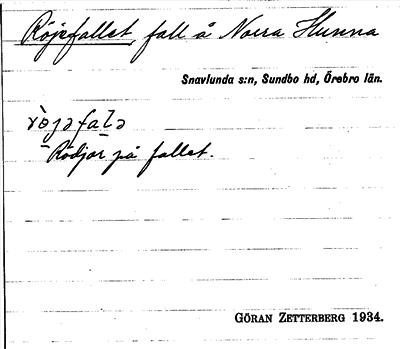 Röjefallet, fall å Norra Hunna
Snavlunda s:n, Sundbo hd, Örebro län.
Rödjor på fallet.
GÖRAN ZETTERBERG 1934.